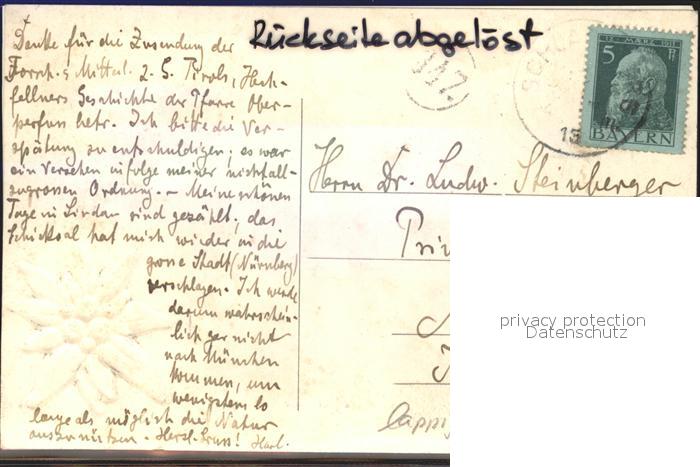 Rückseite abgelöst
Danke für die Zusendung der
Forsch. u. Mitteil. z. G. Tirols, Hech-
fellners Geschichte der Pfarre Ober-
perfuss betr. Ich bitte die Ver-
spätung zu entschuldigen; es war
ein Versehen infolge meiner nicht all-
zugrossen Ordnung. — Meine schönen
Tage in Lindau sind gezählt; das
Schicksal hat mich wieder in die
grosse Stadt (Nürnberg)
verschlagen. Ich werde
darum wahrschein-
lich gar nicht
nach München
kommen, um
wenigstens so
lange als möglich die Natur
auszunützen. Herzl. Gruss! Karl.
12. MÄRZ 1911
5 Pf
BAYERN
Herrn Dr. Ludw. Steinberger
Pri
privacy protection
Datenschutz